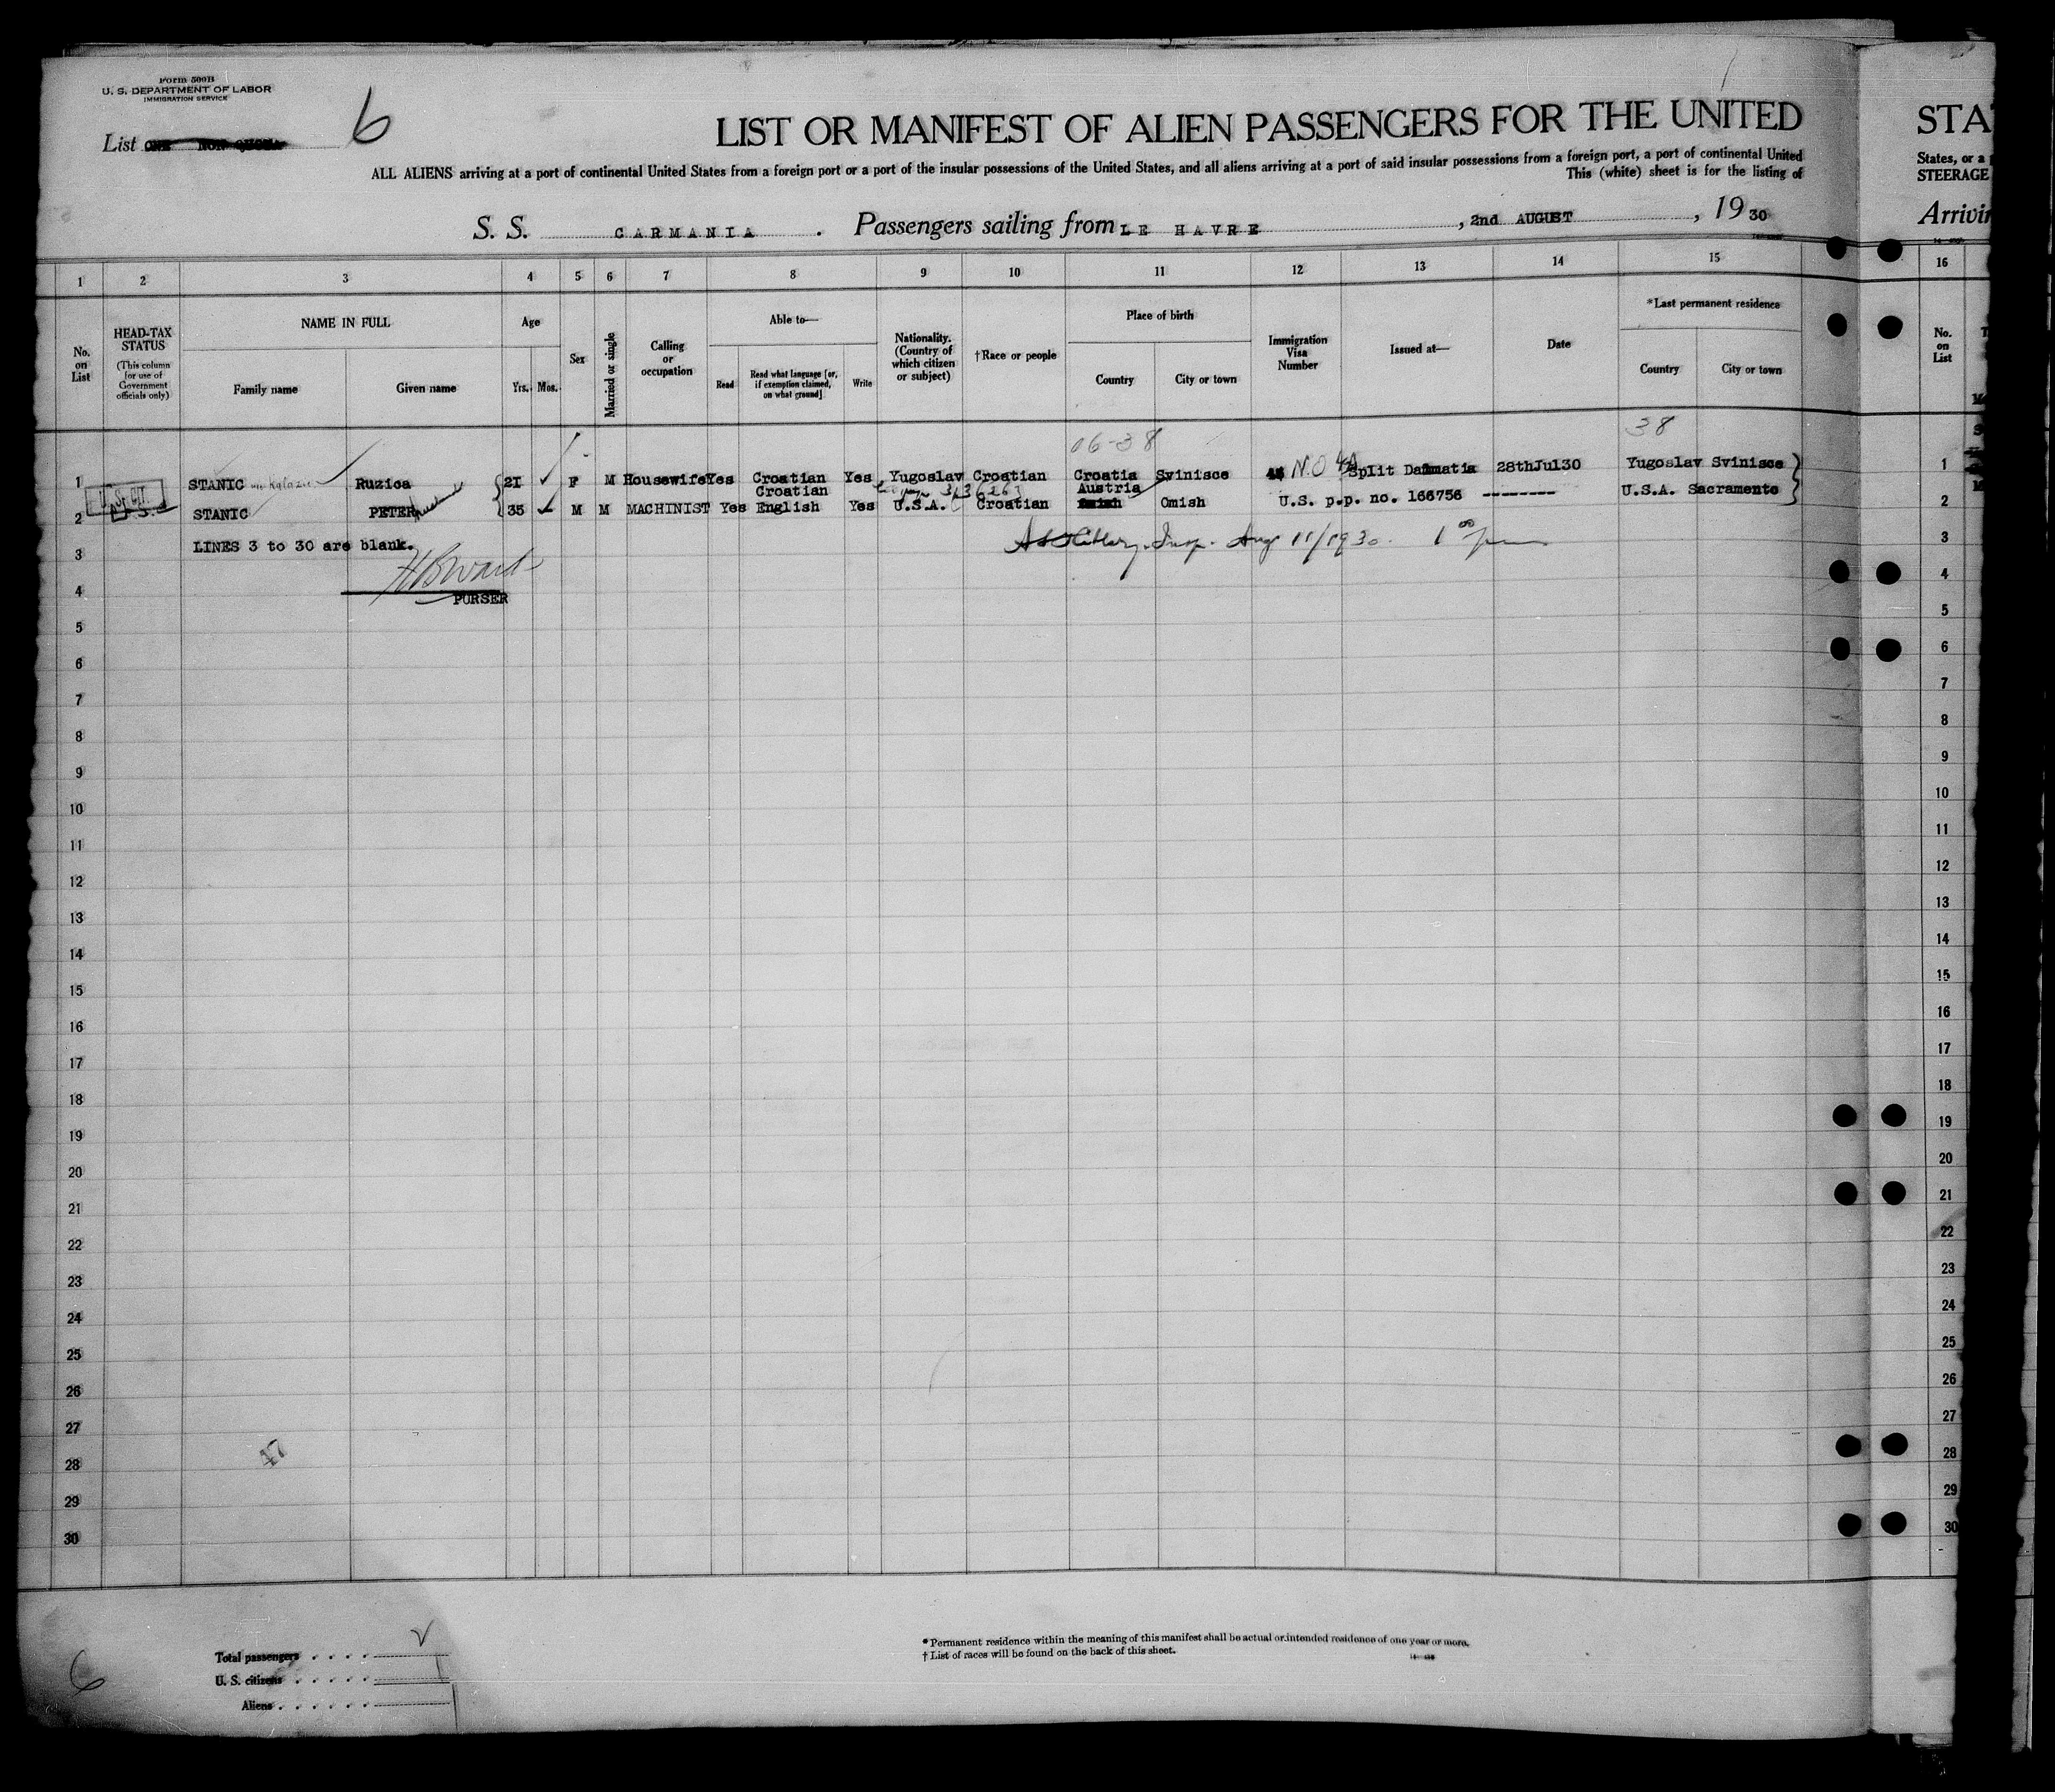 Form 500B
U. S. DEPARTMENT OF LABOR
IMMIGRATION SERVICE
List 6
LIST OR MANIFEST OF ALIEN PASSENGERS FOR THE UNITED
STA
ALL ALIENS arriving at a port of continental United States from a foreign port or a port of the insular possessions of the United States, and all aliens arriving at a port of said insular possessions from a foreign port, a port of continental United
States, or a
This (white) sheet is for the listing of
STEERAGE
S. S. CARMANIA . Passengers sailing from LE HAVRE , 2nd AUGUST , 1930
Arrivin
1 2 3 4 5 6 7 8 9 10 11 12 13 14 15 16
No. on List
HEAD-TAX STATUS
(This column for use of Government officials only)
NAME IN FULL
Family name Given name
Age
Yrs. Mos.
Sex
Married or single
Calling or occupation
Able to—
Read Read what language [or, if exemption claimed, on what ground] Write
Nationality. (Country of which citizen or subject)
†Race or people
Place of birth
Country City or town
Immigration Visa Number
Issued at—
Date
*Last permanent residence
Country City or town
No. on List
06-38 38
1 STANIC Ruzica 21 F M Housewife Yes Croatian Yes Yugoslav Croatian Croatia Svinisce N.O Split Dalmatia 28thJul30 Yugoslav Svinisce 1
Croatian Austria
2 STANIC PETER 35 M M MACHINIST Yes English Yes U.S.A. Croatian Omish U.S. p.p. no. 166756 -------- U.S.A. Sacramento 2
3 LINES 3 to 30 are blank. Insp. Aug 11/1930. 3
4 PURSER 4
5 5
6 6
7 7
8 8
9 9
10 10
11 11
12 12
13 13
14 14
15 15
16 16
17 17
18 18
19 19
20 20
21 21
22 22
23 23
24 24
25 25
26 26
27 27
28 47 28
29 29
30 30
Total passengers
U. S. citizens
Aliens
6
* Permanent residence within the meaning of this manifest shall be actual or intended residence of one year or more.
† List of races will be found on the back of this sheet.